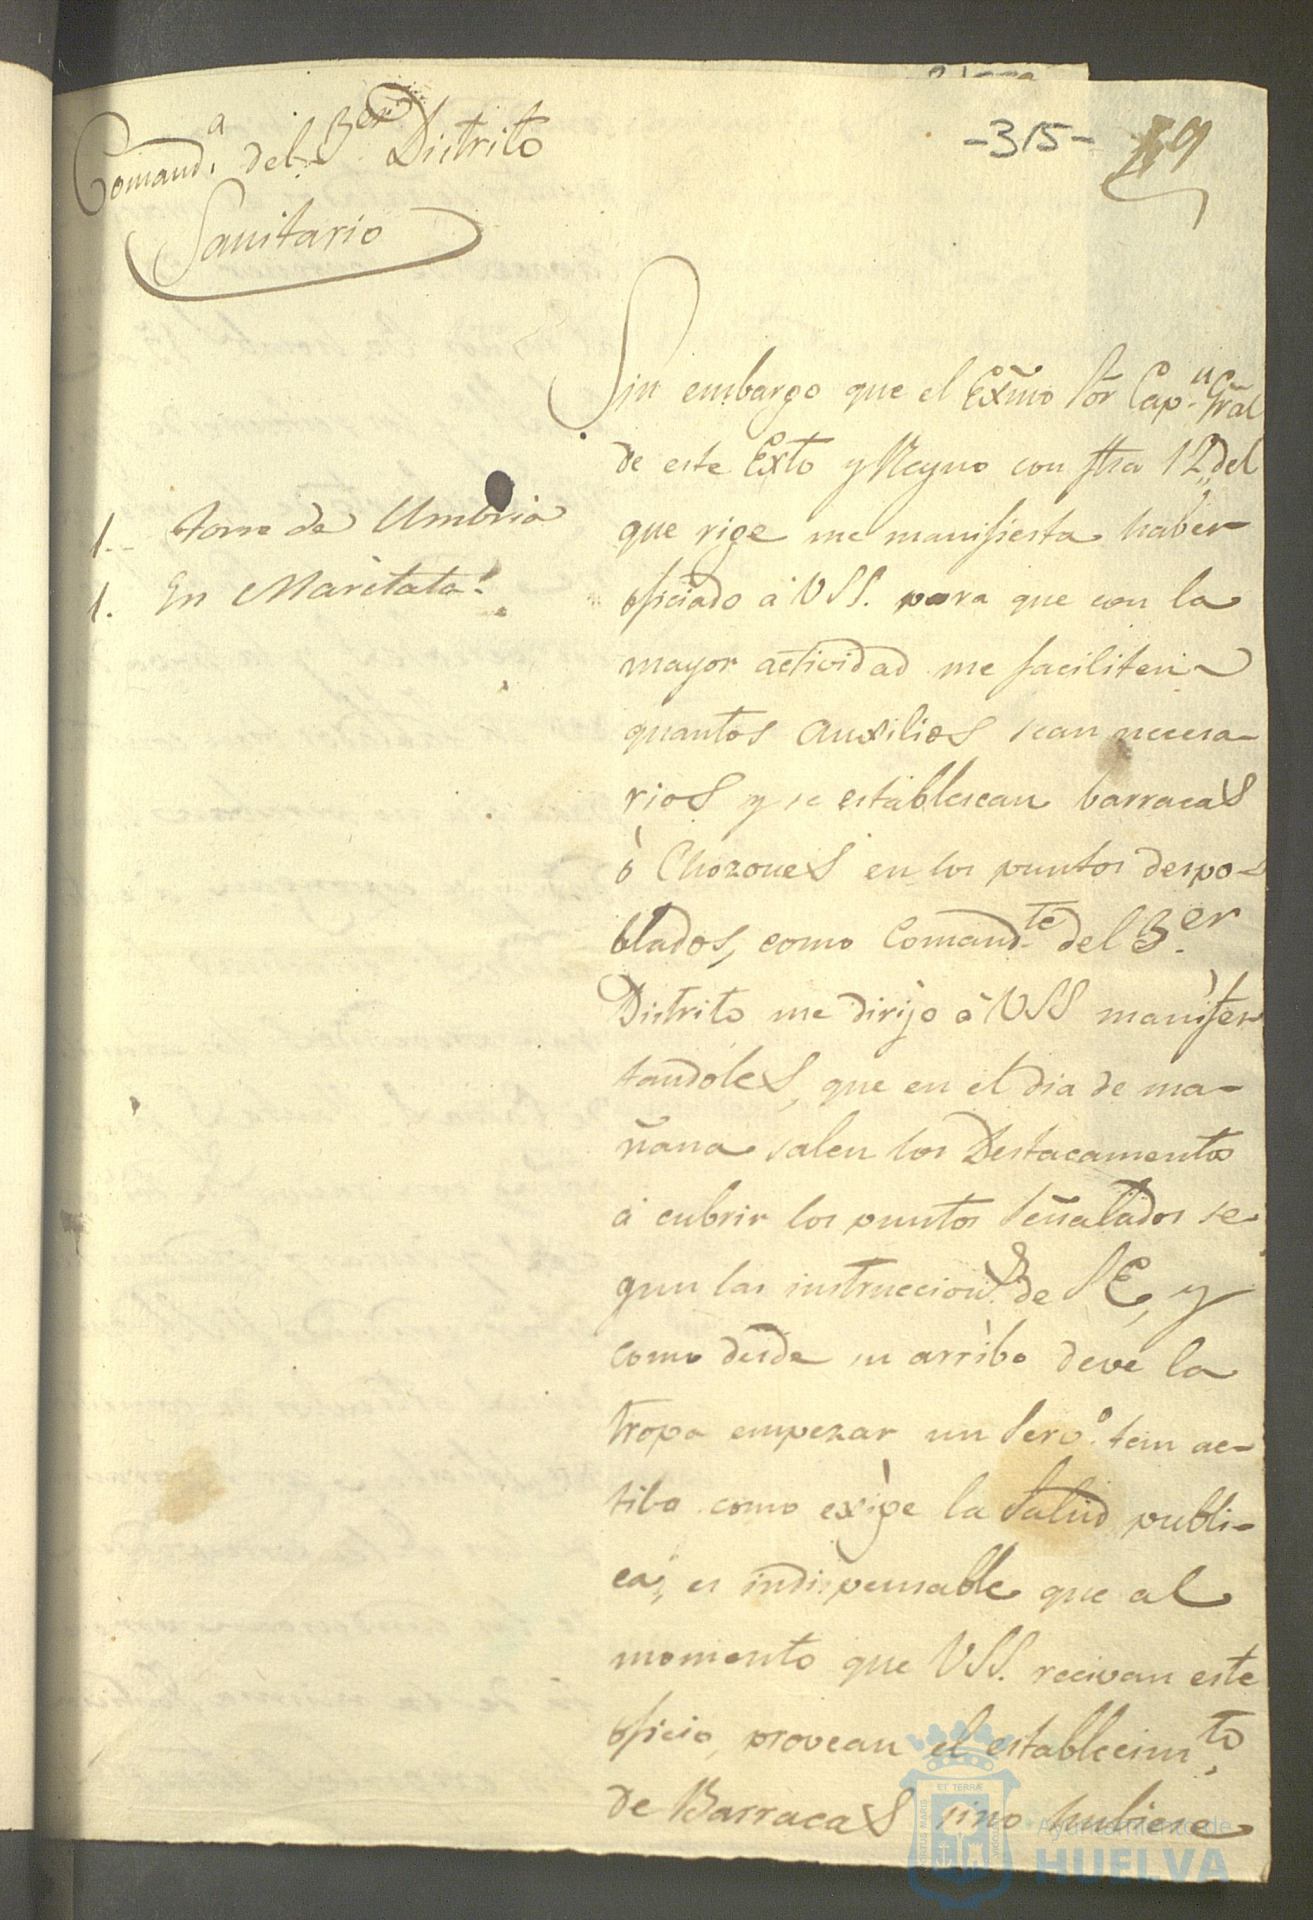 Comand.ª del 3er Distrito
Sanitario
-315- 
1.. torre de Umbria
1. En Maritata.
Sin embargo que el Exmo Sor Capn. Gral
de este Exto y Reyno con fha 12,, del
que rige me manifiesta haber
oficiado á VSS. para que con la
mayor actividad me faciliten
quantos auxilios sean necesa-
rios y se establescan barracas
ò Chozones en los puntos despo-
blados, como Comandte del 3.er
Distrito me dirijo à VSS manifes
tandoles, que en el dia de ma-
ñana salen los Destacamentos
á cubrir los puntos señalados se-
gun las instruccions. de SE, y
como desde su arribo deve la
tropa empezar un Servº. tan ac-
tibo como exige la Salud publi-
ca; es indispensable que al
momento que VSS. recivan este
oficio, provean el establecimto.
de Barracas sino hubiese
ET TERRÆ
PORTUS MARIS
CUSTODIA
Ayuntamiento de
HUELVA